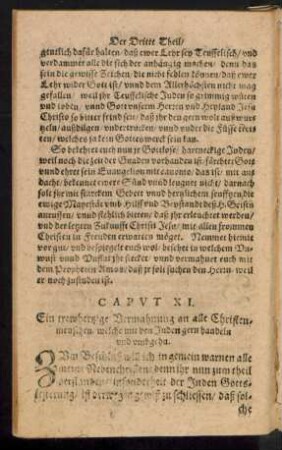 Der Dritte Theil/
gentlich dafür halten/ daß ewer Lehr sey Teuffelisch/ vnd
verdammet alle die sich der anhängig machen/ denn das
sein die gewisse Zeichen/ die nicht fehlen können/ daß ewer
Lehr wider Gott ist/ vnnd dem Allerhöchsten nicht mag
gefallen/ weil jhr Teuffelische Juden so grimmig wüten
vnd toben/ vnnd Gott vnserm Herren vnd Heyland Jesu
Christo so bitter feind sein/ daß jhr den gern wolt außwur-
tzeln/ außtilgen/ vndertrucken/ vnnd vnder die Füsse tret-
ten/ welches ja kein Gotteswerck sein kan.
So bekehret euch nun jr Gottlose/ hartneckige Juden/
weil noch die zeit der Gnaden vorhanden ist: fürchtet Gott
vnnd ehret sein Evangelion mit canone, das ist/ mit an-
dacht/ bekennet ewere Sünd vnd leugnet nicht/ darnach
solt jhr mit starckem Gebett vnnd hertzlichem seufftzen/ die
ewige Mayestät vmb Hilff vnd Beystandt deß H. Geists
anruffen/ vnnd flehlich bitten/ daß jhr erleuchtet werden/
vnd der letzten Zukunfft Christi Jesu/ mit allen frommen
Christen in Freuden erwarten möget. Nemmet hiemit
vor gut/ vnd bespiegelt euch wol/ besehet in welchem Da-
wust vnnd Pusset jhr stecket/ vnnd vermahnet euch mit
dem Propheten Amos/ daß jr solt suchen den Herrn/ weil
er noch zufinden ist.
CAPVT XI.
Ein trewhertzige Vermahnung an alle Christen-
menschen/ welche mit den Juden gern handeln
vnd vmbgehn.
ZVm Beschluß will ich in gemein warnen alle
meine Nebenchristen/ denn jhr nun zum theil
verstanden/ insonderheit der Juden Gotts-
lesterung/ ist derwegen gewiß zu schliessen/ daß sol-
che